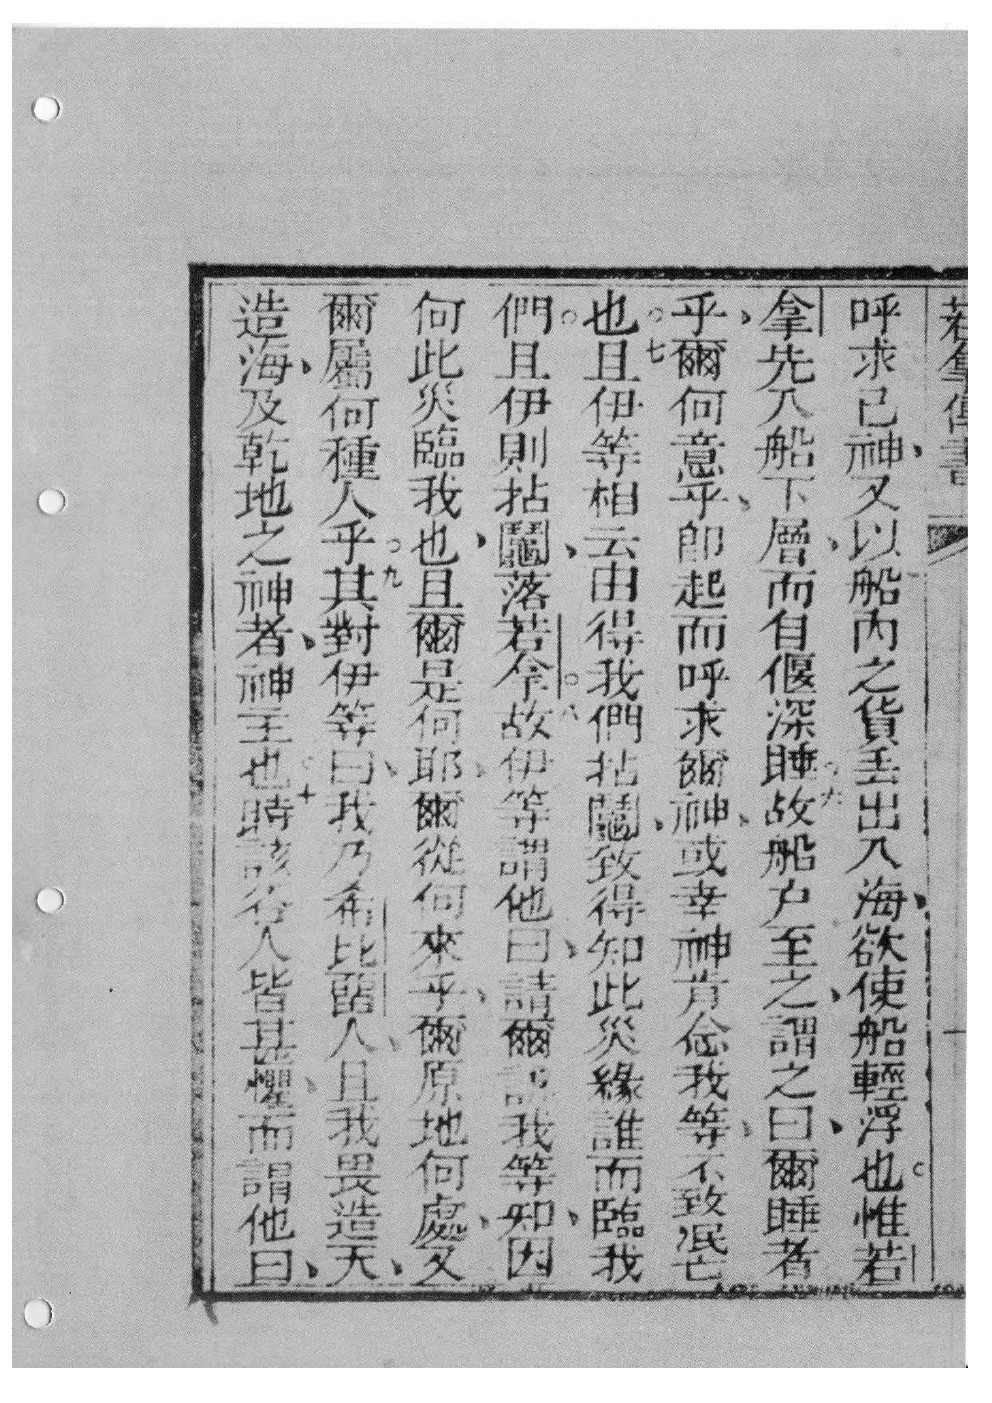 若拿傳書
呼求己神、又以船內之貨丟出入海、欲使船輕浮也。惟若
拿先入船下層、而自偃深睡。六故船戶至之、謂之曰、爾睡者
乎、爾何意乎、即起而呼求爾神、或幸神肯念我等、不致泯亡
也。七且伊等相云、由得我們拈鬮、致得知此災緣誰而臨我
們。且伊則拈鬮、落若拿。八故伊等謂他曰、請爾説我等知、因
何此災臨我也、且爾是何耶、爾從何來乎、爾原地何處、又
爾屬何種人乎。九其對伊等曰、我乃希比留人、且我畏造天、
造海、及乾地之神者、神主也。十時該各人皆甚懼、而謂他曰、